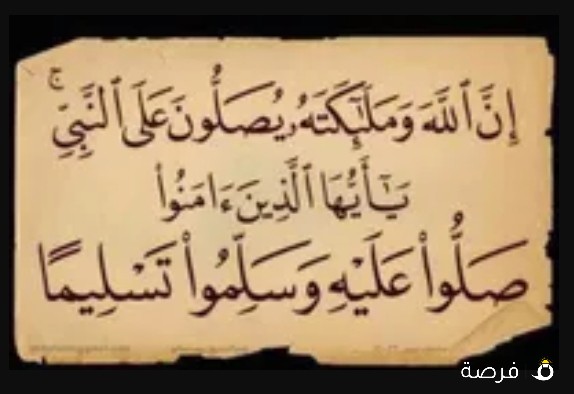 إِنَّ ٱللَّهَ وَمَلَٰٓئِكَتَهُۥ يُصَلُّونَ عَلَى ٱلنَّبِيِّ ۚ
يَٰٓأَيُّهَا ٱلَّذِينَ ءَامَنُوا۟
صَلُّوا۟ عَلَيْهِ وَسَلِّمُوا۟ تَسْلِيمًا
فرصة